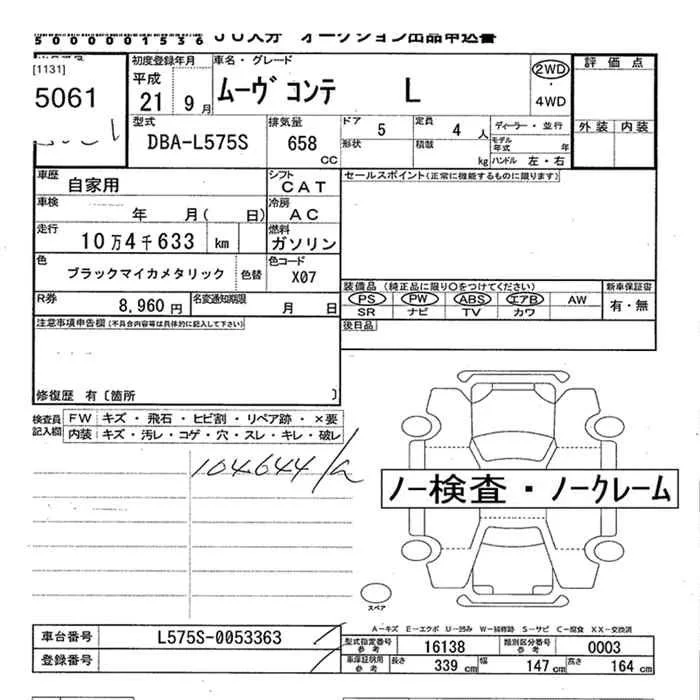 5000001536 JU大分 オークション出品申込書
[1131]
5061
初度登録年月
平成
21 9月
車名・グレード
ムーヴ コンテ L
2WD
・
4WD
評価点
外装 内装
型式
DBA-L575S
排気量
658
CC
ドア 5
定員 4 人
ディーラー・並行
モデル年式 年
形状
積載 kg
ハンドル 左・右
車歴
自家用
シフト
CAT
セールスポイント(正常に機能するものに限ります)
車検
年 月( 日)
冷房
AC
走行
10万4千633 km
燃料
ガソリン
色
ブラックマイカメタリック
色替
色コード
X07
装備品 (純正品に限り〇をつけてください)
新車保証書
PS PW ABS エアB AW
有・無
SR ナビ TV カワ
R券
8,960円
名変通知期限
月 日
後日品
注意事項申告欄(不具合内容等は具体的に記入して下さい)
修復歴 有〔箇所 〕
検査員記入欄
FW キズ・飛石・ヒビ割・リペア跡・×要
内装 キズ・汚レ・コゲ・穴・スレ・キレ・破レ
104644
ノー検査・ノークレーム
スペア
A-キズ E-エクボ U-凹み W-補修跡 S-サビ C-腐食 XX-交換済
車台番号 L575S-0053363
型式指定番号 参考 16138
類別区分番号 参考 0003
登録番号
車庫証明用 参考
長さ 339 cm
幅 147 cm
高さ 164 cm